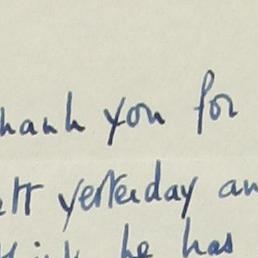 hank you for
ett yesterday an
think he has